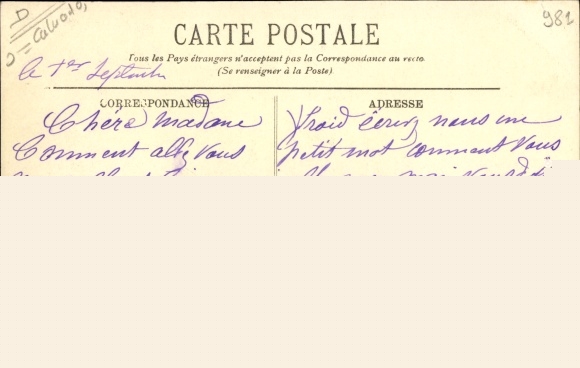 D
= Calvados,
981
CARTE POSTALE
Tous les Pays étrangers n'acceptent pas la Correspondance au recto
(Se renseigner à la Poste)
le 1er Septembre
CORRESPONDANCE
Chére madame
Comment allez vous
ADRESSE
froid écrivez nous une
petit mot comment vous